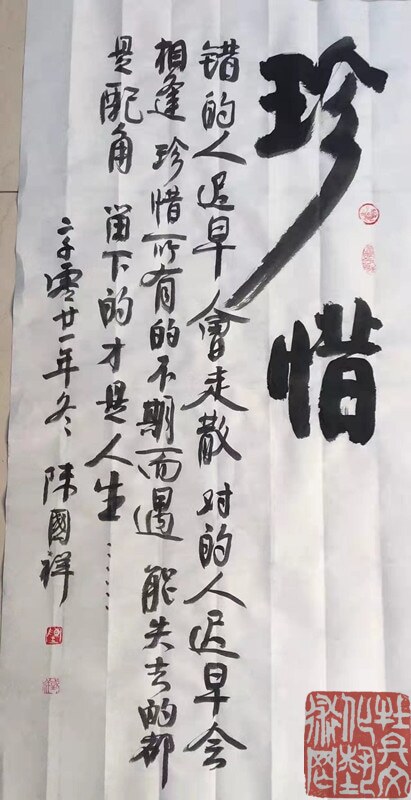 珍惜
错的人迟早會走散 对的人迟早会
相逢 珍惜所有的不期而遇 能失去的都
是配角 留下的才是人生……
二千零廿一年冬 陈國祥